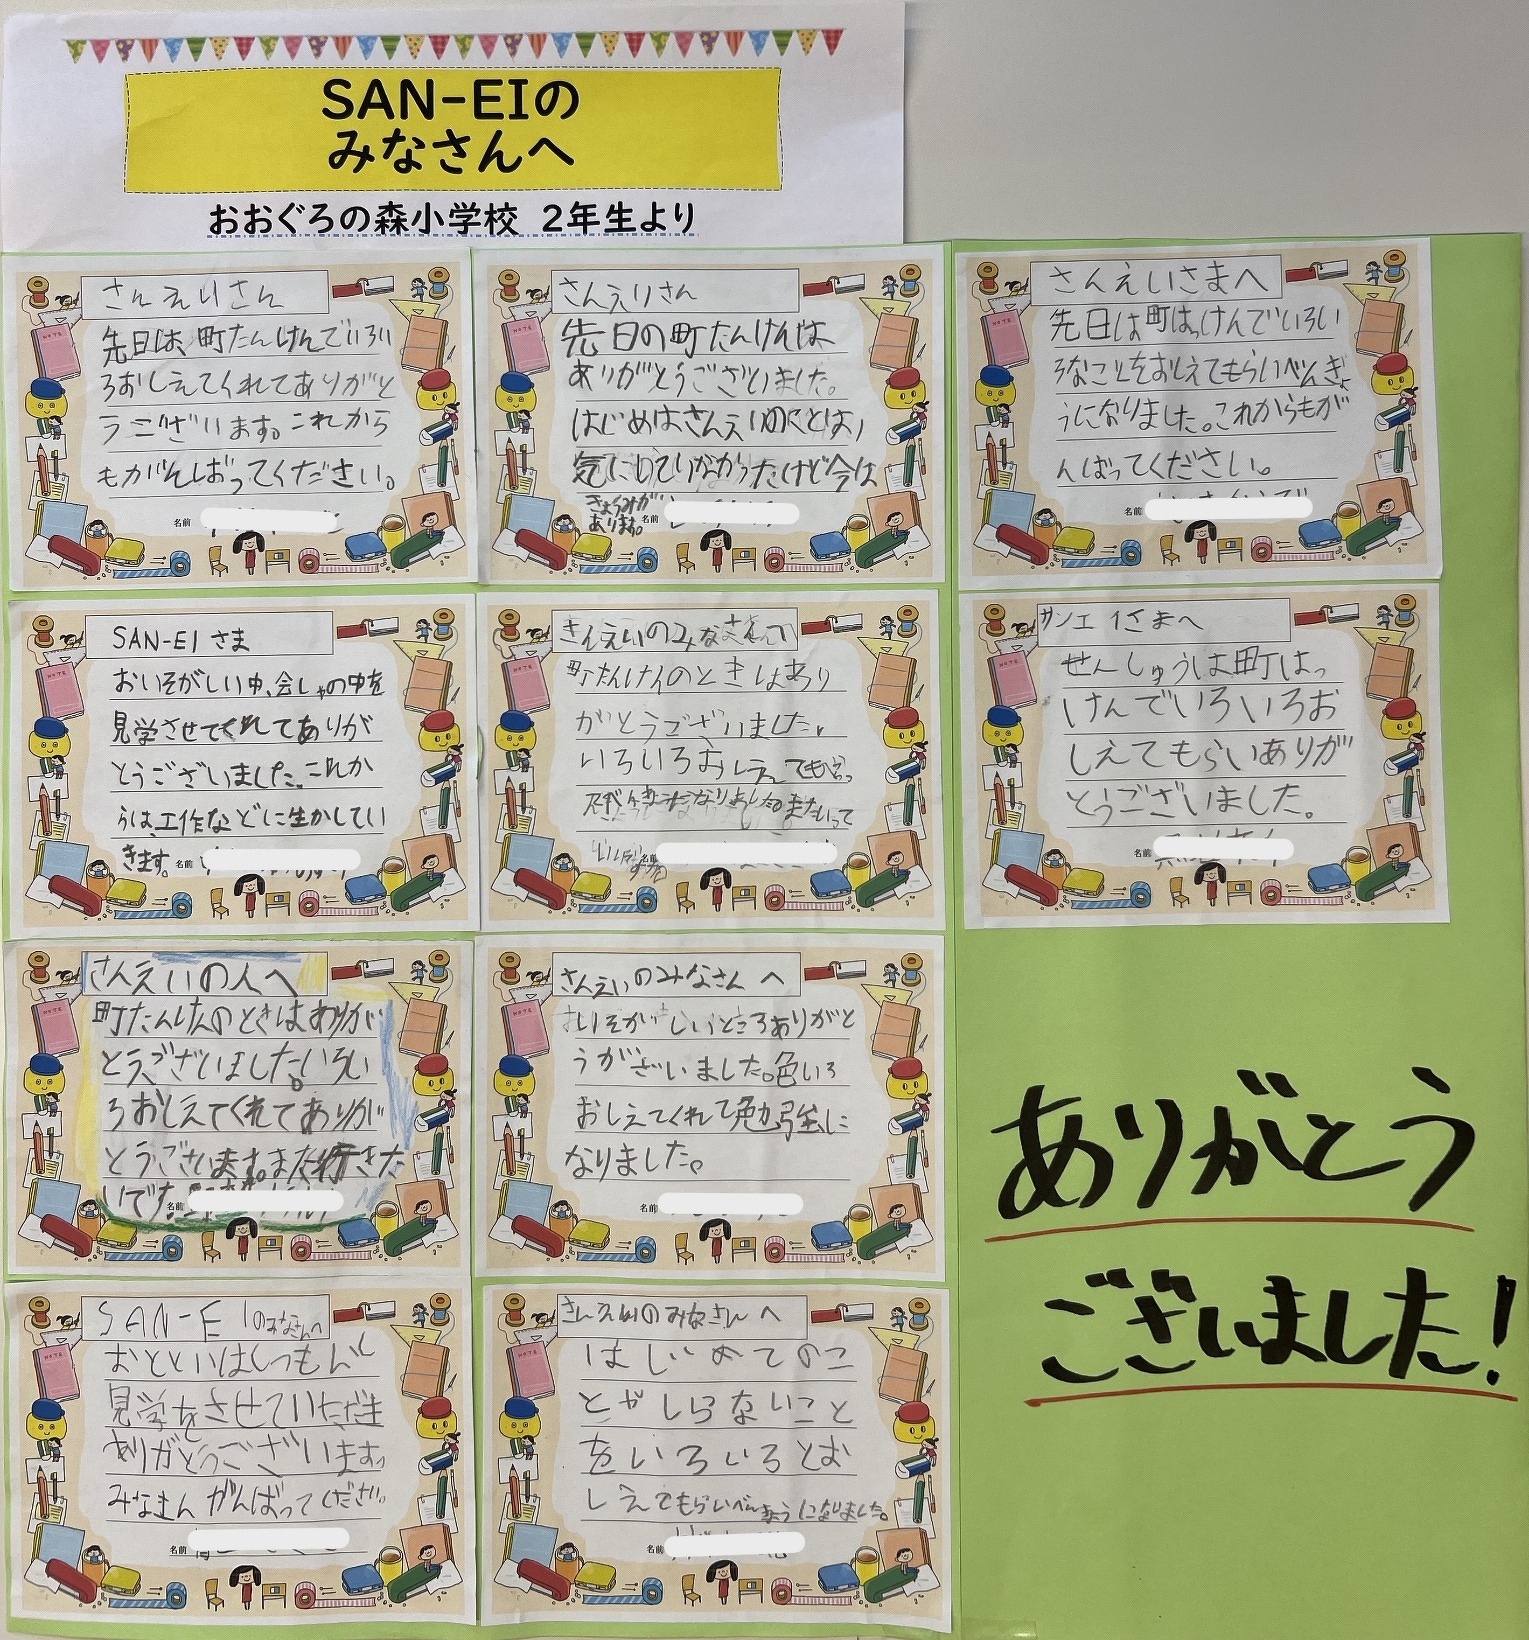 SAN-EIの
みなさんへ
おおぐろの森小学校 2年生より
さんえいさん
先日は、町たんけんでいろい
ろおしえてくれてありがと
うございます。これから
もがんばってください。
名前
さんえいさん
先日の町たんけんは
ありがとうございました。
はじめはさんえいのことは、
気にしていなかったけど今は
きょうみが
あります。
名前
さんえいさまへ
先日は町はっけんでいろい
ろなことをおしえてもらいべんきょ
うになりました。これからもが
んばってください。
名前
SAN-EIさま
おいそがしい中、会しゃの中を
見学させてくれてありが
とうございました。これか
らは工作などに生かしてい
きます。
名前
さんえいのみなさんへ
町たんけんのときはあり
がとうございました。
いろいろおしえてもらっ
べんきょうになりました。またいって
名前
サンエイさまへ
せんしゅうは町はっ
けんでいろいろお
しえてもらいありが
とうございました。
名前
さんえいの人へ
町たんけんのときはありが
とうございました。いろい
ろおしえてくれてありが
とうございます。また行きた
いです。
名前
さんえいのみなさんへ
おいそがしいところありがと
うがざいました。色いろ
おしえてくれて勉強に
なりました。
名前
SAN-EIのみなさんへ
おとといはしつもんし
見学をさせていただき
ありがとうございます。
みなさんがんばってください。
名前
さんえいのみなさんへ
はじめてのこ
とやしらないこと
をいろいろとお
しえてもらいべんきょうになりました。
名前
ありがとう
ございました!